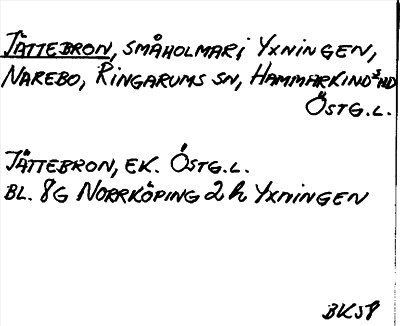 JÄTTEBRON, SMÅHOLMAR i YXNINGEN,
NAREBO, RINGARUMS SN, HAMMARKINDS HD
ÖSTG.L.
JÄTTEBRON, EK. ÖSTG.L.
BL. 8G NORRKÖPING 2h YXNINGEN
BKS8